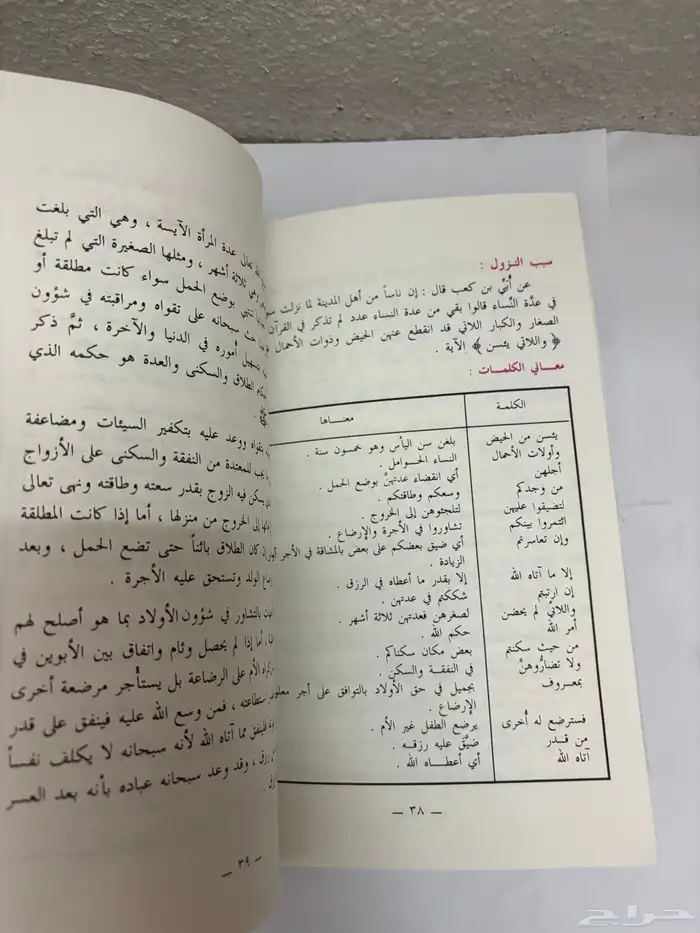 سبب النزول :
عن أُبَيّ بن كعب قال : إن ناساً من أهل المدينة لما نزلت
في عدَّة النِّساء قالوا بقي من عدة النساء عدد لم تذكر في القرآن
الصغار والكبار اللائي قد انقطع عنهن الحيض وذوات الأحمال
﴿ واللائي يئسن ﴾ الآية .
معاني الكلمات :
الكلمة معناها
يئسن من الحيض بلغن سن اليأس وهو خمسون سنة .
وأولات الأحمال النساء الحوامل .
أجلهن أي انقضاء عدتهنَّ بوضع الحمل .
من وجدكم وسعكم وطاقتكم .
لتضيقوا عليهن لتلجئوهن إلى الخروج .
ائتمروا بينكم تشاوروا في الأجرة والإرضاع .
وإن تعاسرتم أي ضيق بعضكم على بعض بالمشاقة في الأجر
الزيادة .
إلا ما آتاه الله إلا بقدر ما أعطاه في الرزق .
إن ارتبتم شككتم في عدتهن .
واللائي لم يحضن لصغرهن فعدتهن ثلاثة أشهر .
أمر الله حكم الله .
من حيث سكنتم بعض مكان سكناكم .
ولا تضاروهنَّ في النفقة والسكن .
بمعروف بجميل في حق الأولاد بالتوافق على أجر
الإرضاع .
فسترضع له أخرى يرضع الطفل غير الأم .
من قدر ضيَّق عليه رزقه .
آتاه الله أي أعطاه الله .
— ٣٨ —
تعالى عدة المرأة الآيسة ، وهي التي بلغت
وهي ثلاثة أشهر ، ومثلها الصغيرة التي لم تبلغ
بوضع الحمل سواء كانت مطلقة أو
حث سبحانه على تقواه ومراقبته في شؤون
تسهيل أموره في الدنيا والآخرة ، ثمَّ ذكر
الطلاق والسكنى والعدة هو حكمه الذي
بتقواه ووعد عليه بتكفير السيئات ومضاعفة
يجب للمعتدة من النفقة والسكنى على الأزواج
يسكن فيه الزوج بقدر سعته وطاقته ونهى تعالى
إلى الخروج من منزلها ، أما إذا كانت المطلقة
إن كان الطلاق بائناً حتى تضع الحمل ، وبعد
الولد وتستحق عليه الأجرة .
بالتشاور في شؤون الأولاد بما هو أصلح لهم
، أما إذا لم يحصل وئام واتفاق بين الأبوين في
الأم على الرضاعة بل يستأجر مرضعة أخرى
استطاعته ، فمن وسع الله عليه فينفق على قدر
فلينفق مما آتاه الله لأنه سبحانه لا يكلف نفساً
رزق ، وقد وعد سبحانه عباده بأنه بعد العسر
— ٣٩ —
حراج